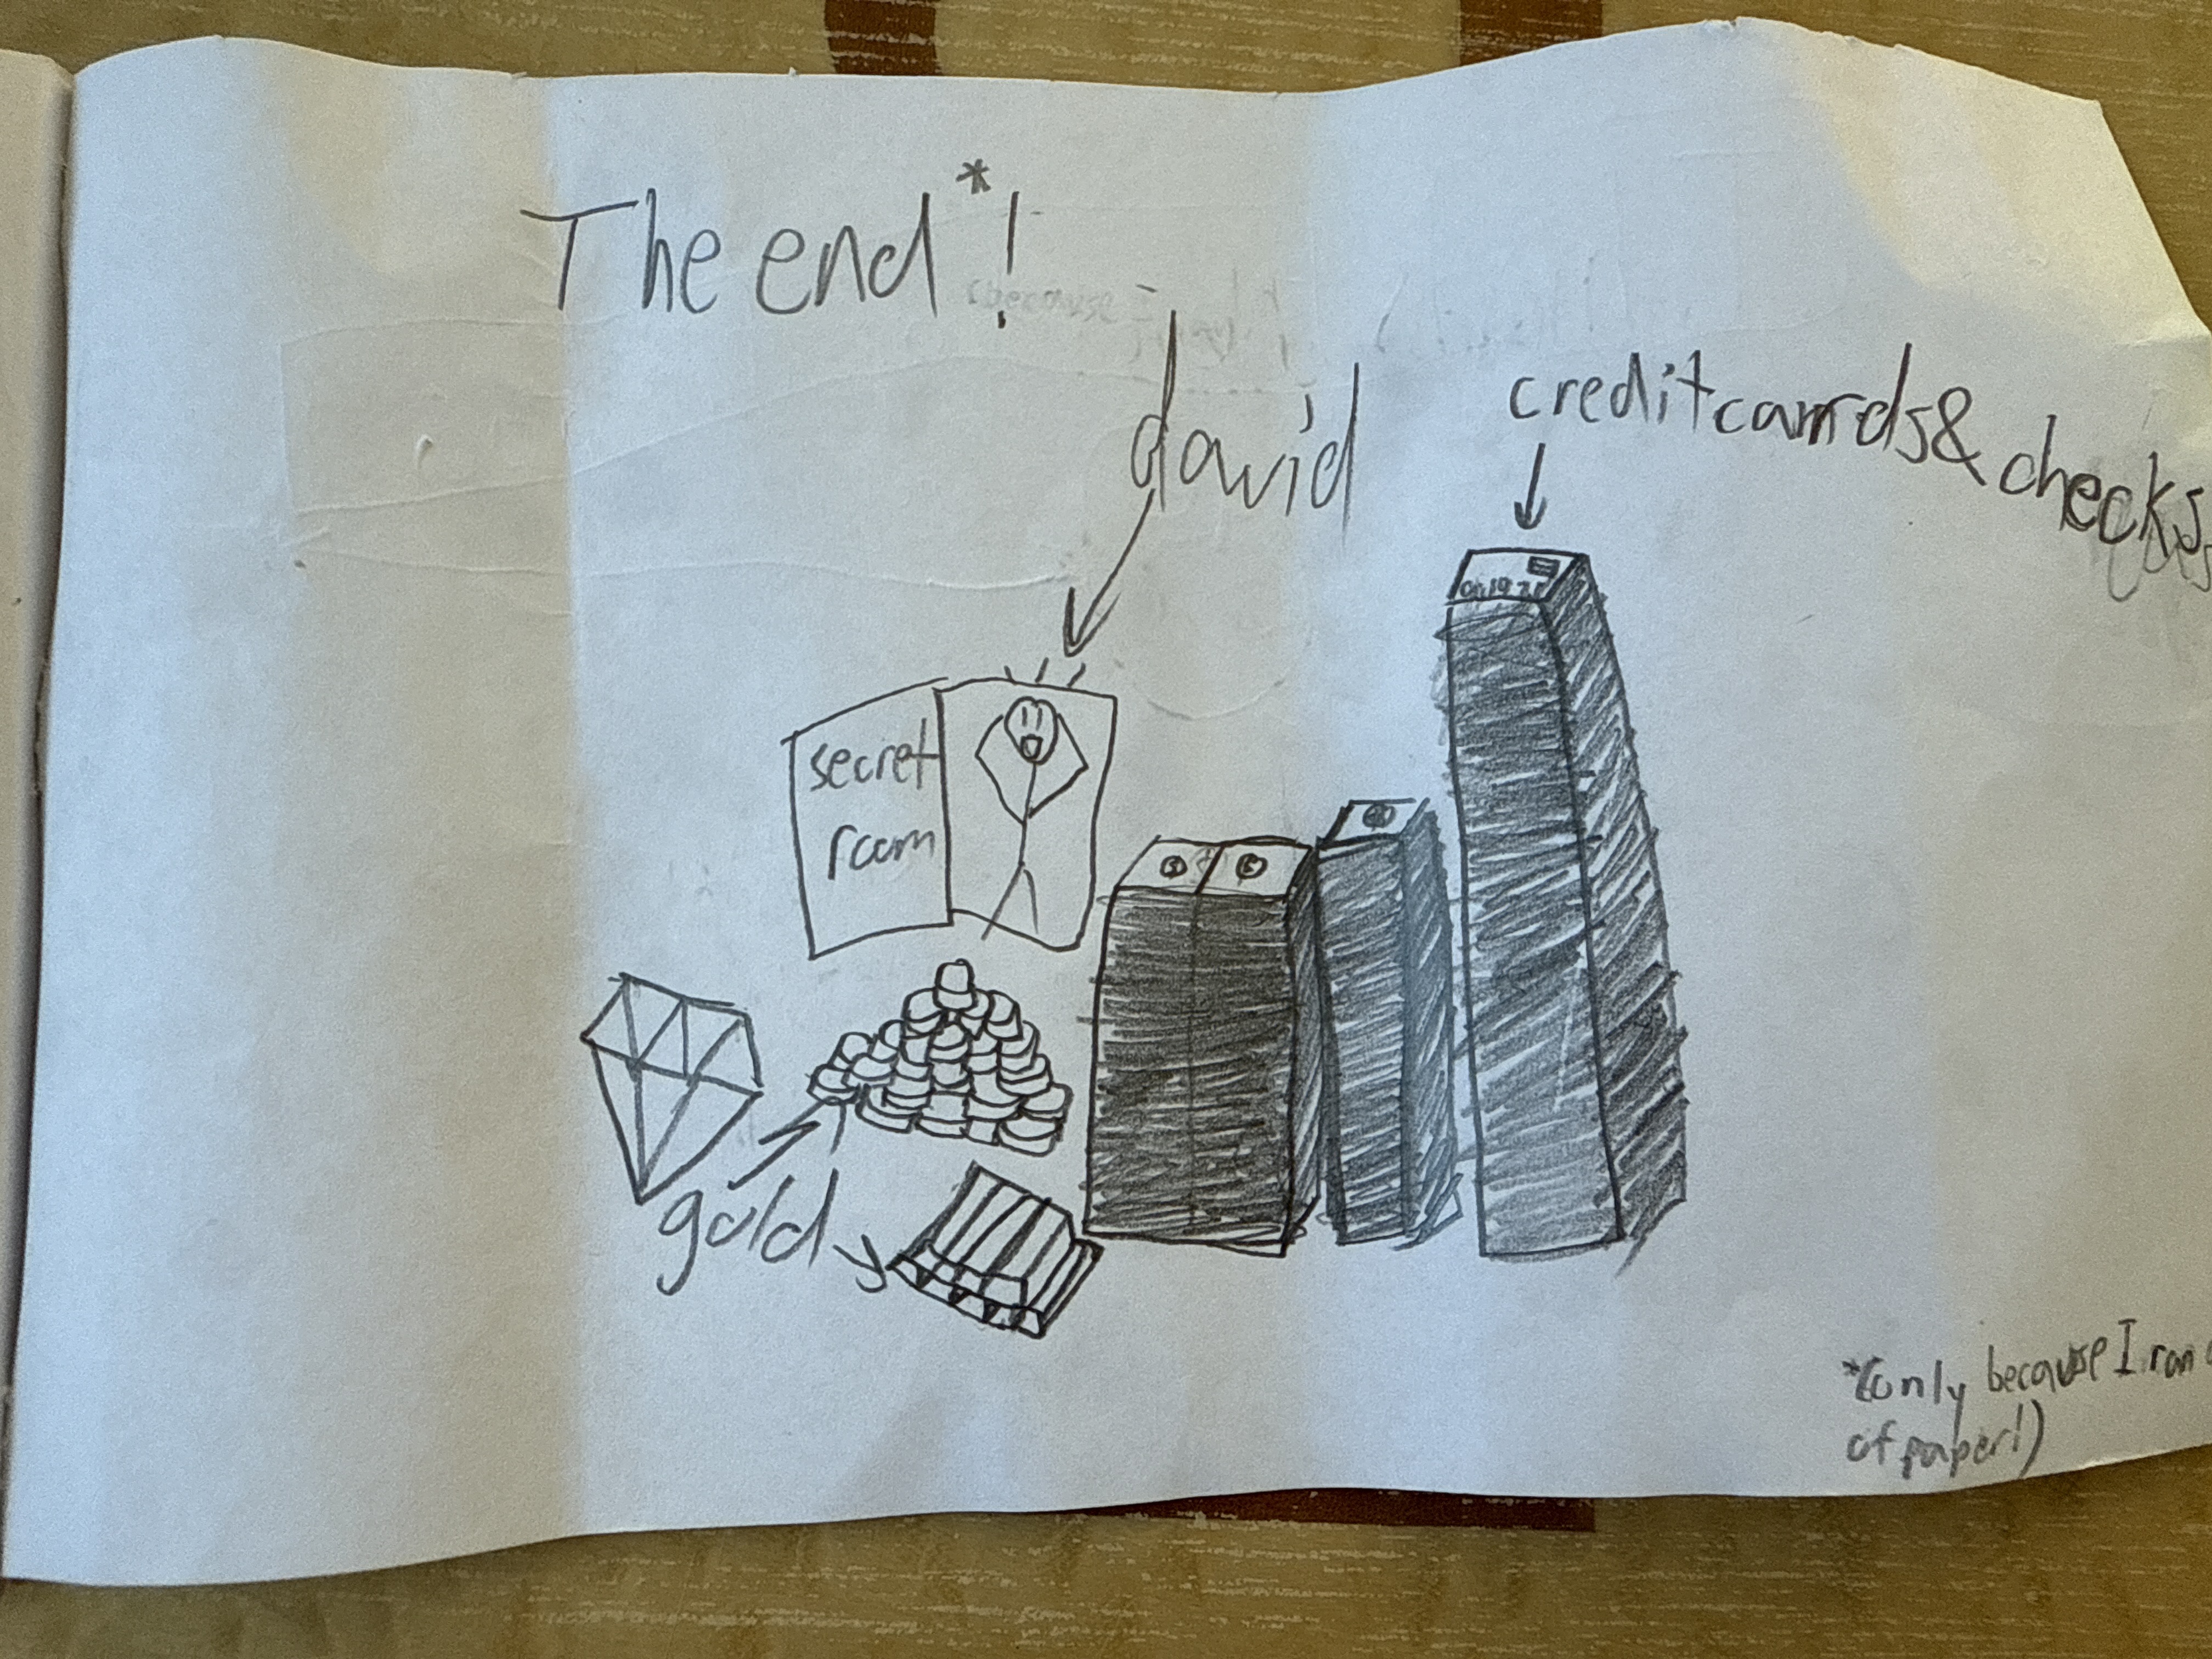 The end!*
david
credit cards & checks
secret
room
gold
*(only because I ran
of paper!)